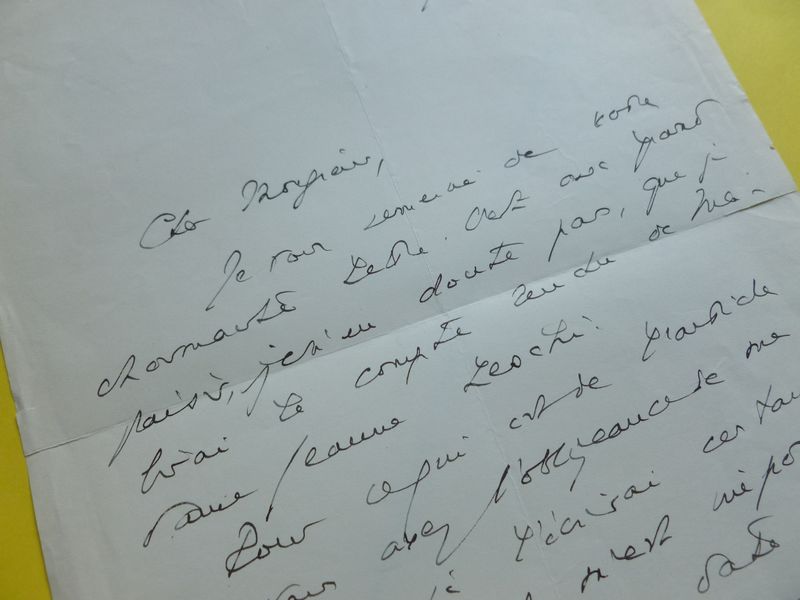 Cher Monsieur,
Je vous remercie de votre
charmante lettre. C'est avec grand
plaisir, je n'en doute pas, que je
lirai le compte rendu de Ma-
dame Jeanne
Pour ce qui est de l'article
vous avez l'obligeance de me
je l'écrirai certai
m'est
date